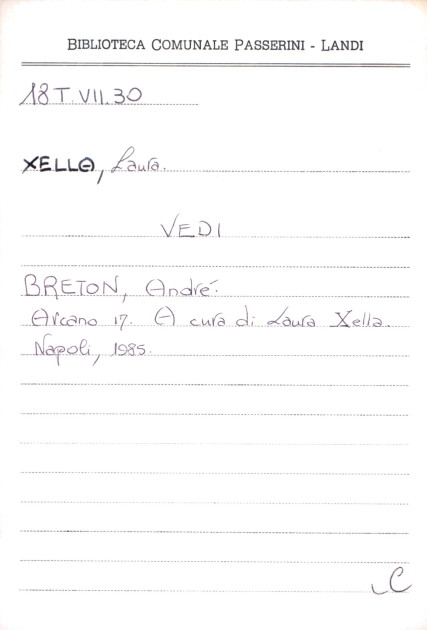 BIBLIOTECA COMUNALE PASSERINI - LANDI
18 T.VII.30
XELLA, Laura.
VEDI
BRETON, André.
Arcano 17. A cura di Laura Xella.
Napoli, 1985.
C